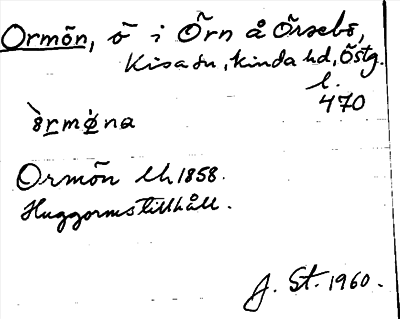 Ormön, ö i Örn å Örsebo,
Kisa sn, Kinda hd, Östg.
l.
470
òrmø̀na
Ormön lh 1858.
Huggormstillhåll.
J. St. 1960.